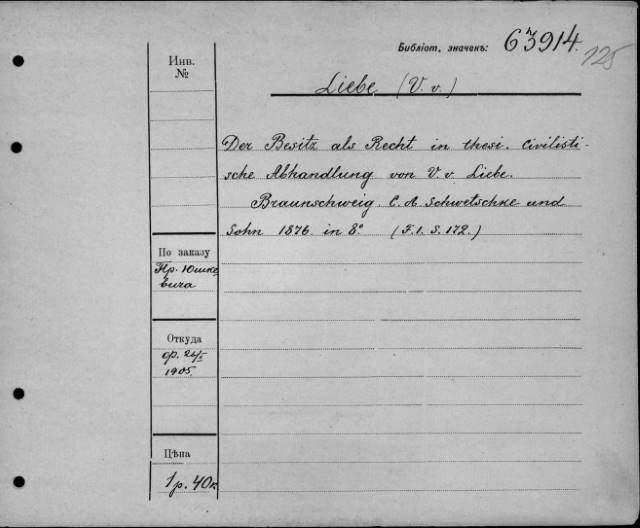 Библіот. значекъ: 63914.
125
Инв.
№
Liebe (V. v.)
Der Besitz als Recht in thesi. Civilisti-
sche Abhandlung von V. v. Liebe.
Braunschweig. C. A Schwetschke und
Sohn 1876. in 8° (F. 1. S. 172.)
По заказу
Пр. Юшке
вича
Откуда
ор.
1905.
Цѣна
1 р. 40 к